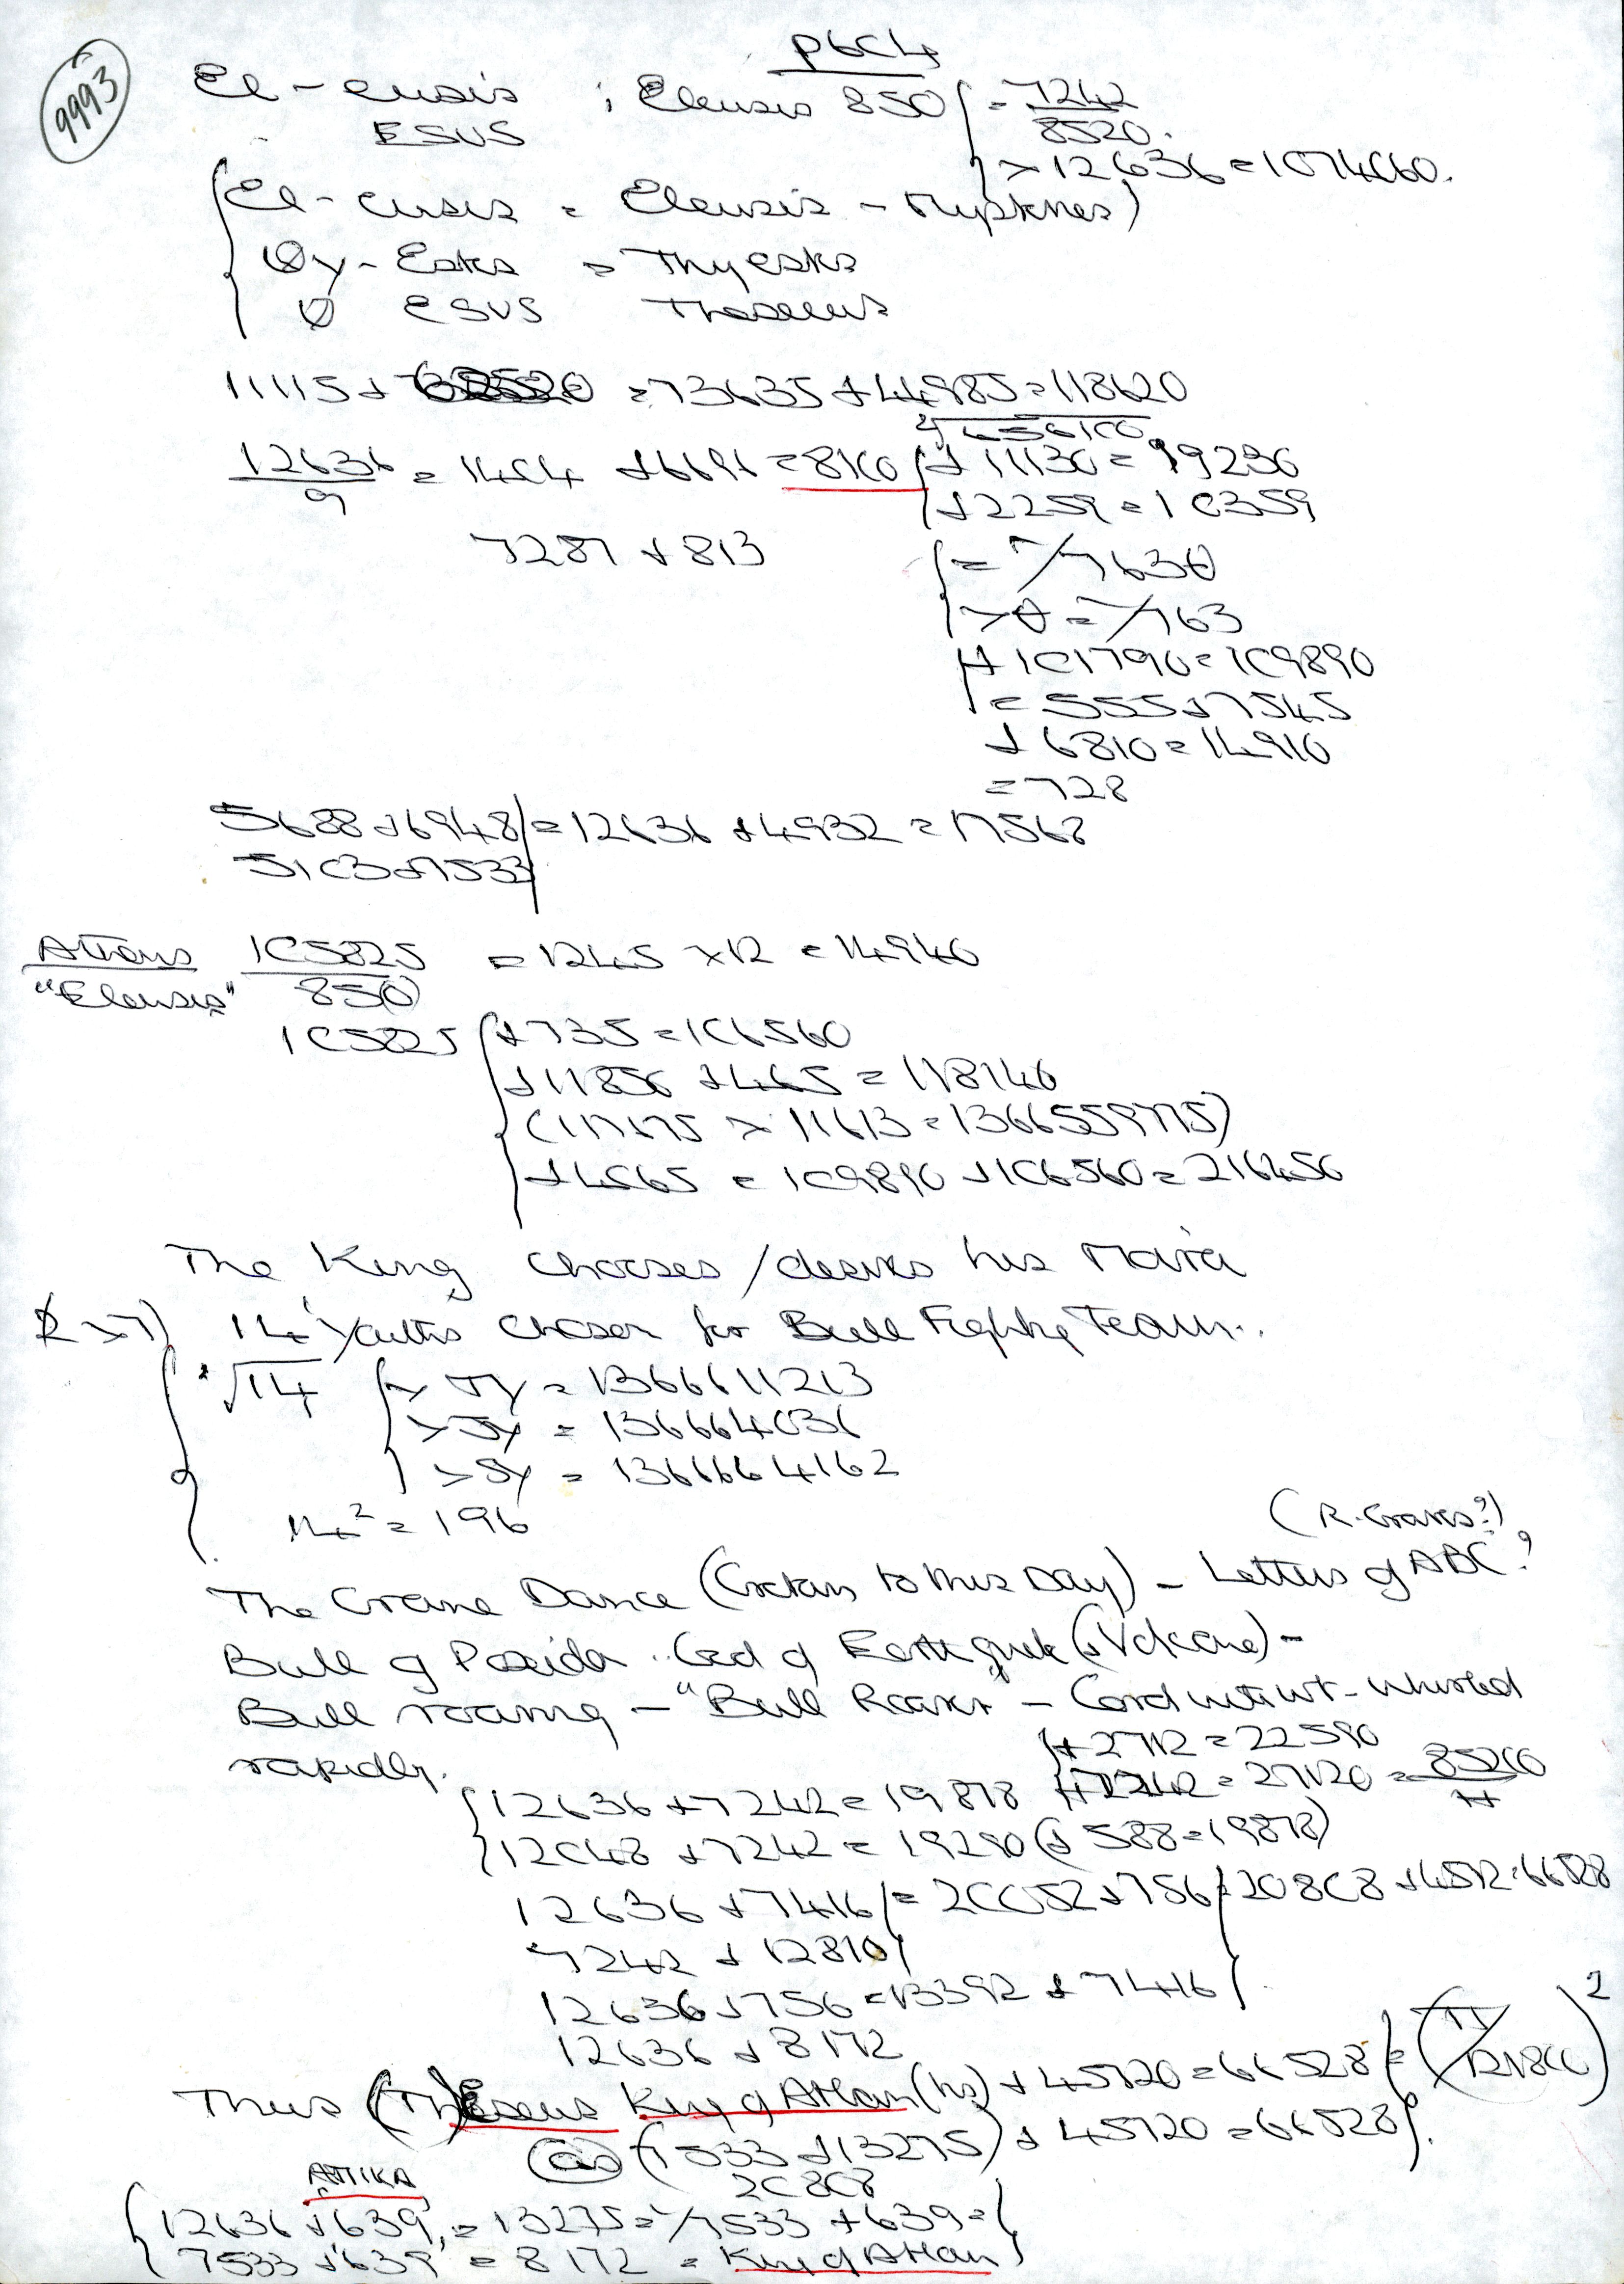 9993
El-eusis : Eleusis 850 = 7242
ESUS 8520.
× 12636 = 1074060.
El-eusis = Eleusis - Mysteries)
Thyestes
ESUS Theseus
11115 + = 73635 + 44985 = 118620
√656100
12636 = 1404 + 6696 = 8100 + 11130 = 19230
9 + 2259 = 10359
7287 + 813
+ 101790 = 109890
= 555 + 7545
+ 6810 = 14910
= 728
5688 + 6948 = 12636 + 4932 = 17568
5103 + 7533
Athens 105825 = 1245 × 12 = 14940
"Eleusis" 850
105825 + 735 = 106560
+ 11850 + 465 = 118140
(117675 × 11613 = 1366559775)
+ 4065 = 109890 + 106560 = 216450
The King chooses/desires his
14 Youths chosen for Bull Fighting Team..
√14 = 1366611213
= 136664036
= 1366664162
14² = 196
(R. Graves?)
The Crane Dance (Cretans to this Day) - Letters of ABC?
Bull of Poseidon .. God of Earthquake (& Volcano) -
Bull roaring - "Bull Roarer - Cord with wt - whirled
rapidly.
+ 2712 = 22590
12636 + 7242 = 19878 + 7242 = 27120 = 85200
12048 + 7242 = 19290 (+ 588 = 19878)
12636 + 7416 = 20052 + 756 = 20808 + 45720 = 66528
7242 + 12810
12636 + 756 = 13392 + 7416
12636 + 8172
Thus (Th)eseus King of Athen(hs) + 45720 = 66528
as (7533 + 13275) + 45720 = 66528
20808
ATTIKA
12636 + 639 = 13275 = 7533 + 639 =
7533 + 639 = 8172 = King of Athen